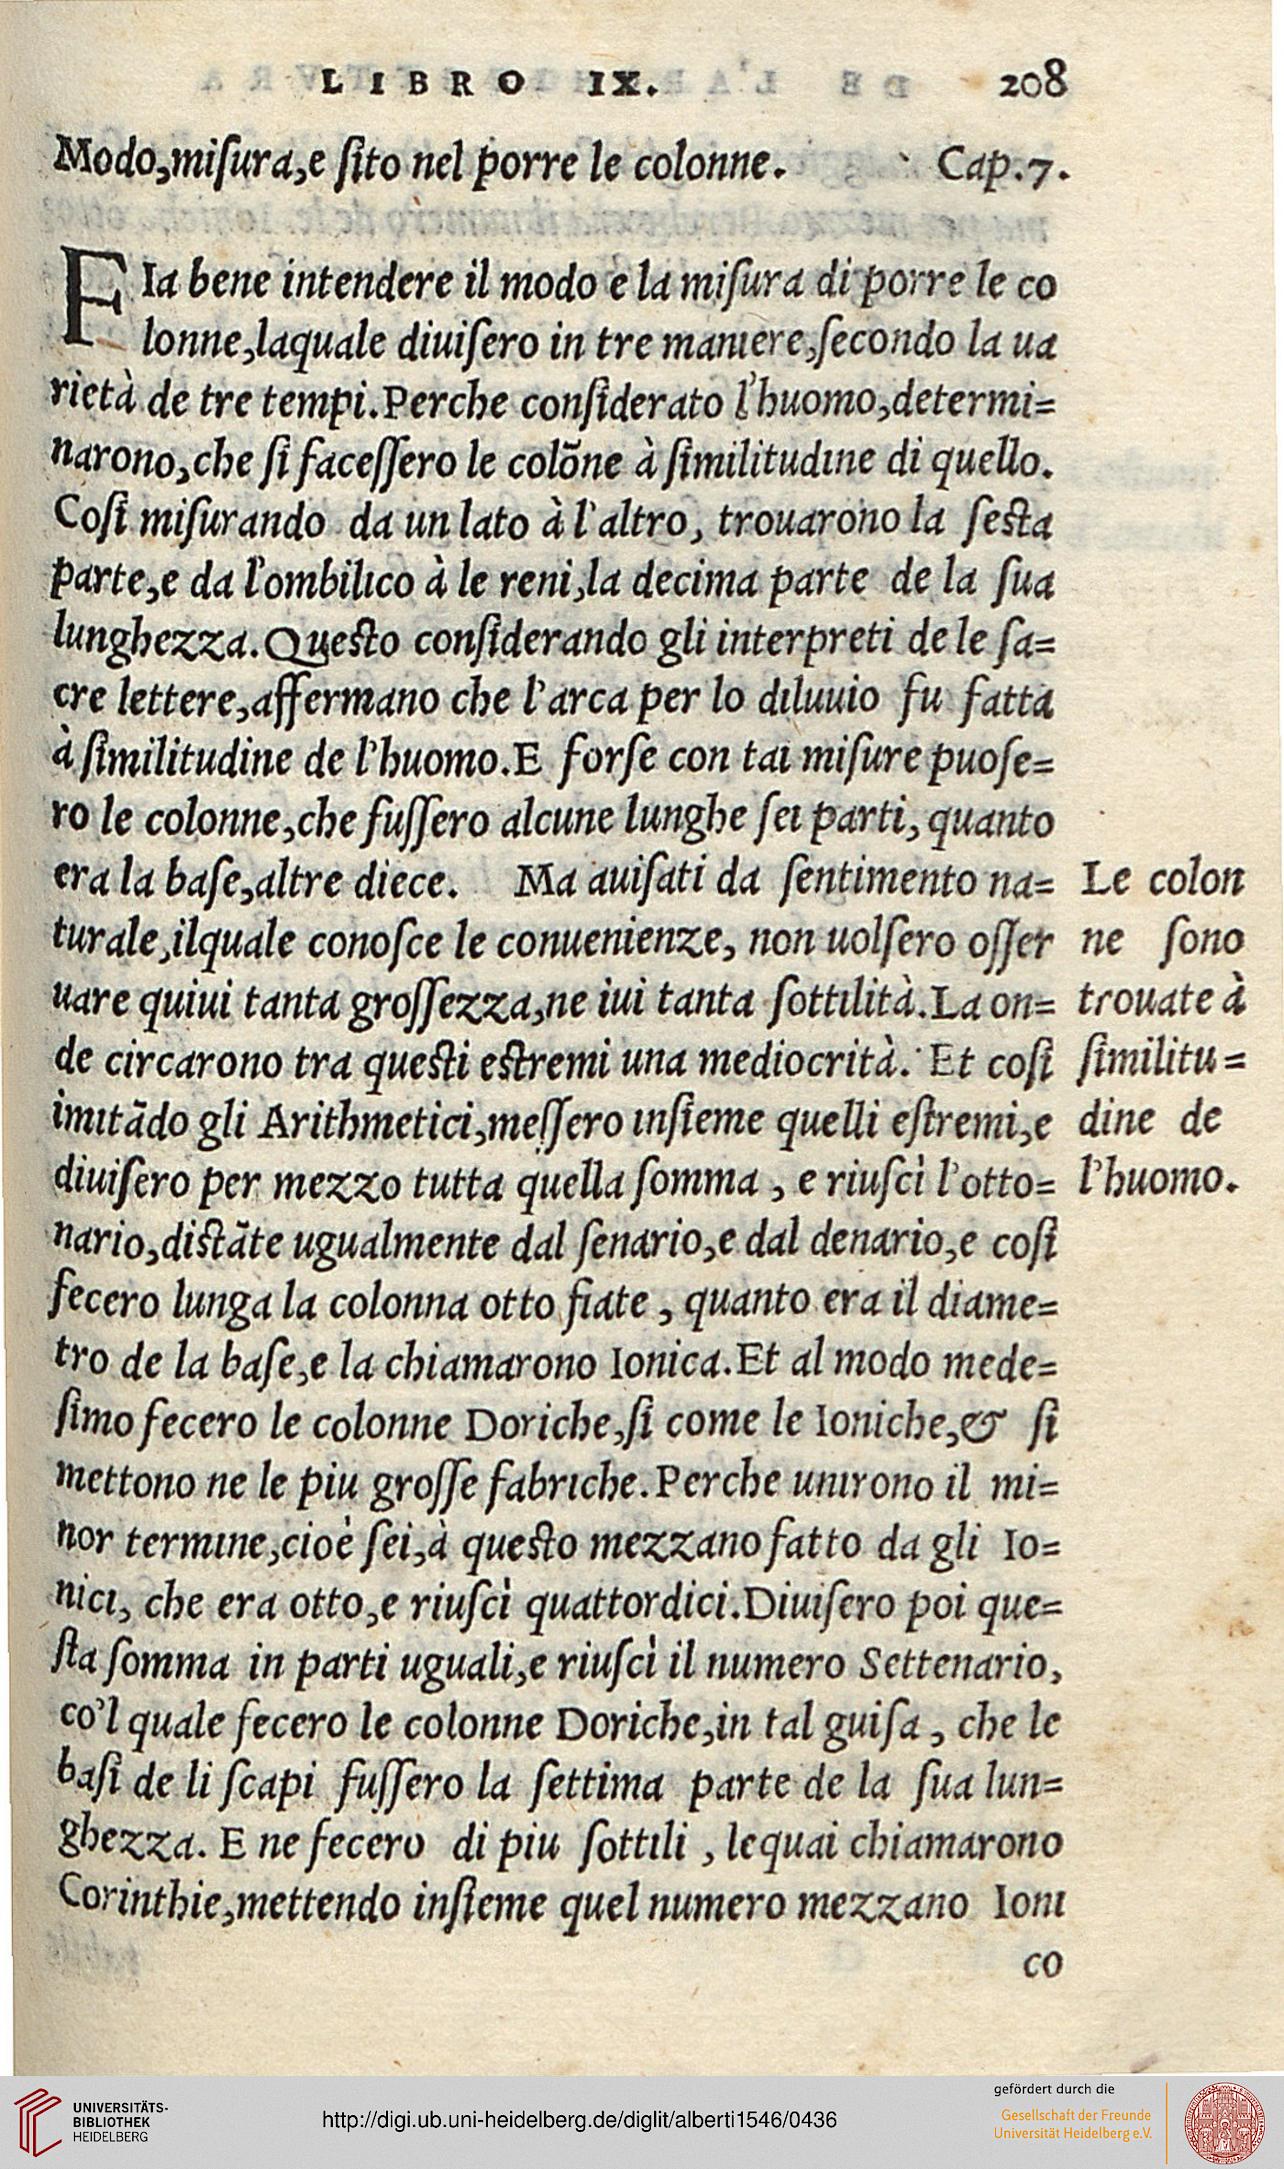 LIBRO IX. 208
Modo,miſura,e ſito nel porre le colonne. Cap.7.
FIa bene intendere il modo e la miſura di porre le co
lonne,laquale diuiſero in tre maniere,ſecondo la ua
rietà de tre tempi.Perche conſiderato l'huomo,determi=
narono,che ſi faceſſero le colōne à ſimilitudine di quello.
Coſi miſurando da un lato à l'altro, trouarono la ſeſta
parte,e da l'ombilico à le reni,la decima parte de la ſua
lunghezza.Queſto conſiderando gli interpreti de le ſa=
cre lettere,affermano che l'arca per lo diluuio fu fatta
à ſimilitudine de l'huomo.E forſe con tai miſure puoſe=
ro le colonne,che fuſſero alcune lunghe ſei parti, quanto
era la baſe,altre diece. Ma auiſati da ſentimento na=
turale,ilquale conoſce le conuenienze, non uolſero oſſer
uare quiui tanta groſſezza,ne iui tanta ſottilità.La on=
de circarono tra queſti eſtremi una mediocrità. Et coſi
imitādo gli Arithmetici,meſſero inſieme quelli eſtremi,e
diuiſero per mezzo tutta quella ſomma , e riuſcì l'otto=
nario,diſtāte ugualmente dal ſenario,e dal denario,e coſi
fecero lunga la colonna otto fiate , quanto era il diame=
tro de la baſe,e la chiamarono Ionica.Et al modo mede=
ſimo fecero le colonne Doriche,ſi come le Ioniche,& ſi
mettono ne le piu groſſe fabriche.Perche unirono il mi=
nor termine,cioè ſei,à queſto mezzano fatto da gli Io=
nici, che era otto,e riuſcì quattordici.Diuiſero poi que=
ſta ſomma in parti uguali,e riuſcì il numero Settenario,
co'l quale fecero le colonne Doriche,in tal guiſa , che le
baſi de li ſcapi fuſſero la ſettima parte de la ſua lun=
ghezza. E ne fecero di piu ſottili , lequai chiamarono
Corinthie,mettendo inſieme quel numero mezzano Ioni
co
Le colon
ne ſono
trouate à
ſimilitu=
dine de
l'huomo.
UNIVERSITÄTS-
BIBLIOTHEK
HEIDELBERG
http://digi.ub.uni-heidelberg.de/diglit/alberti1546/0436
gefördert durch die
Gesellschaft der Freunde
Universität Heidelberg e.V.